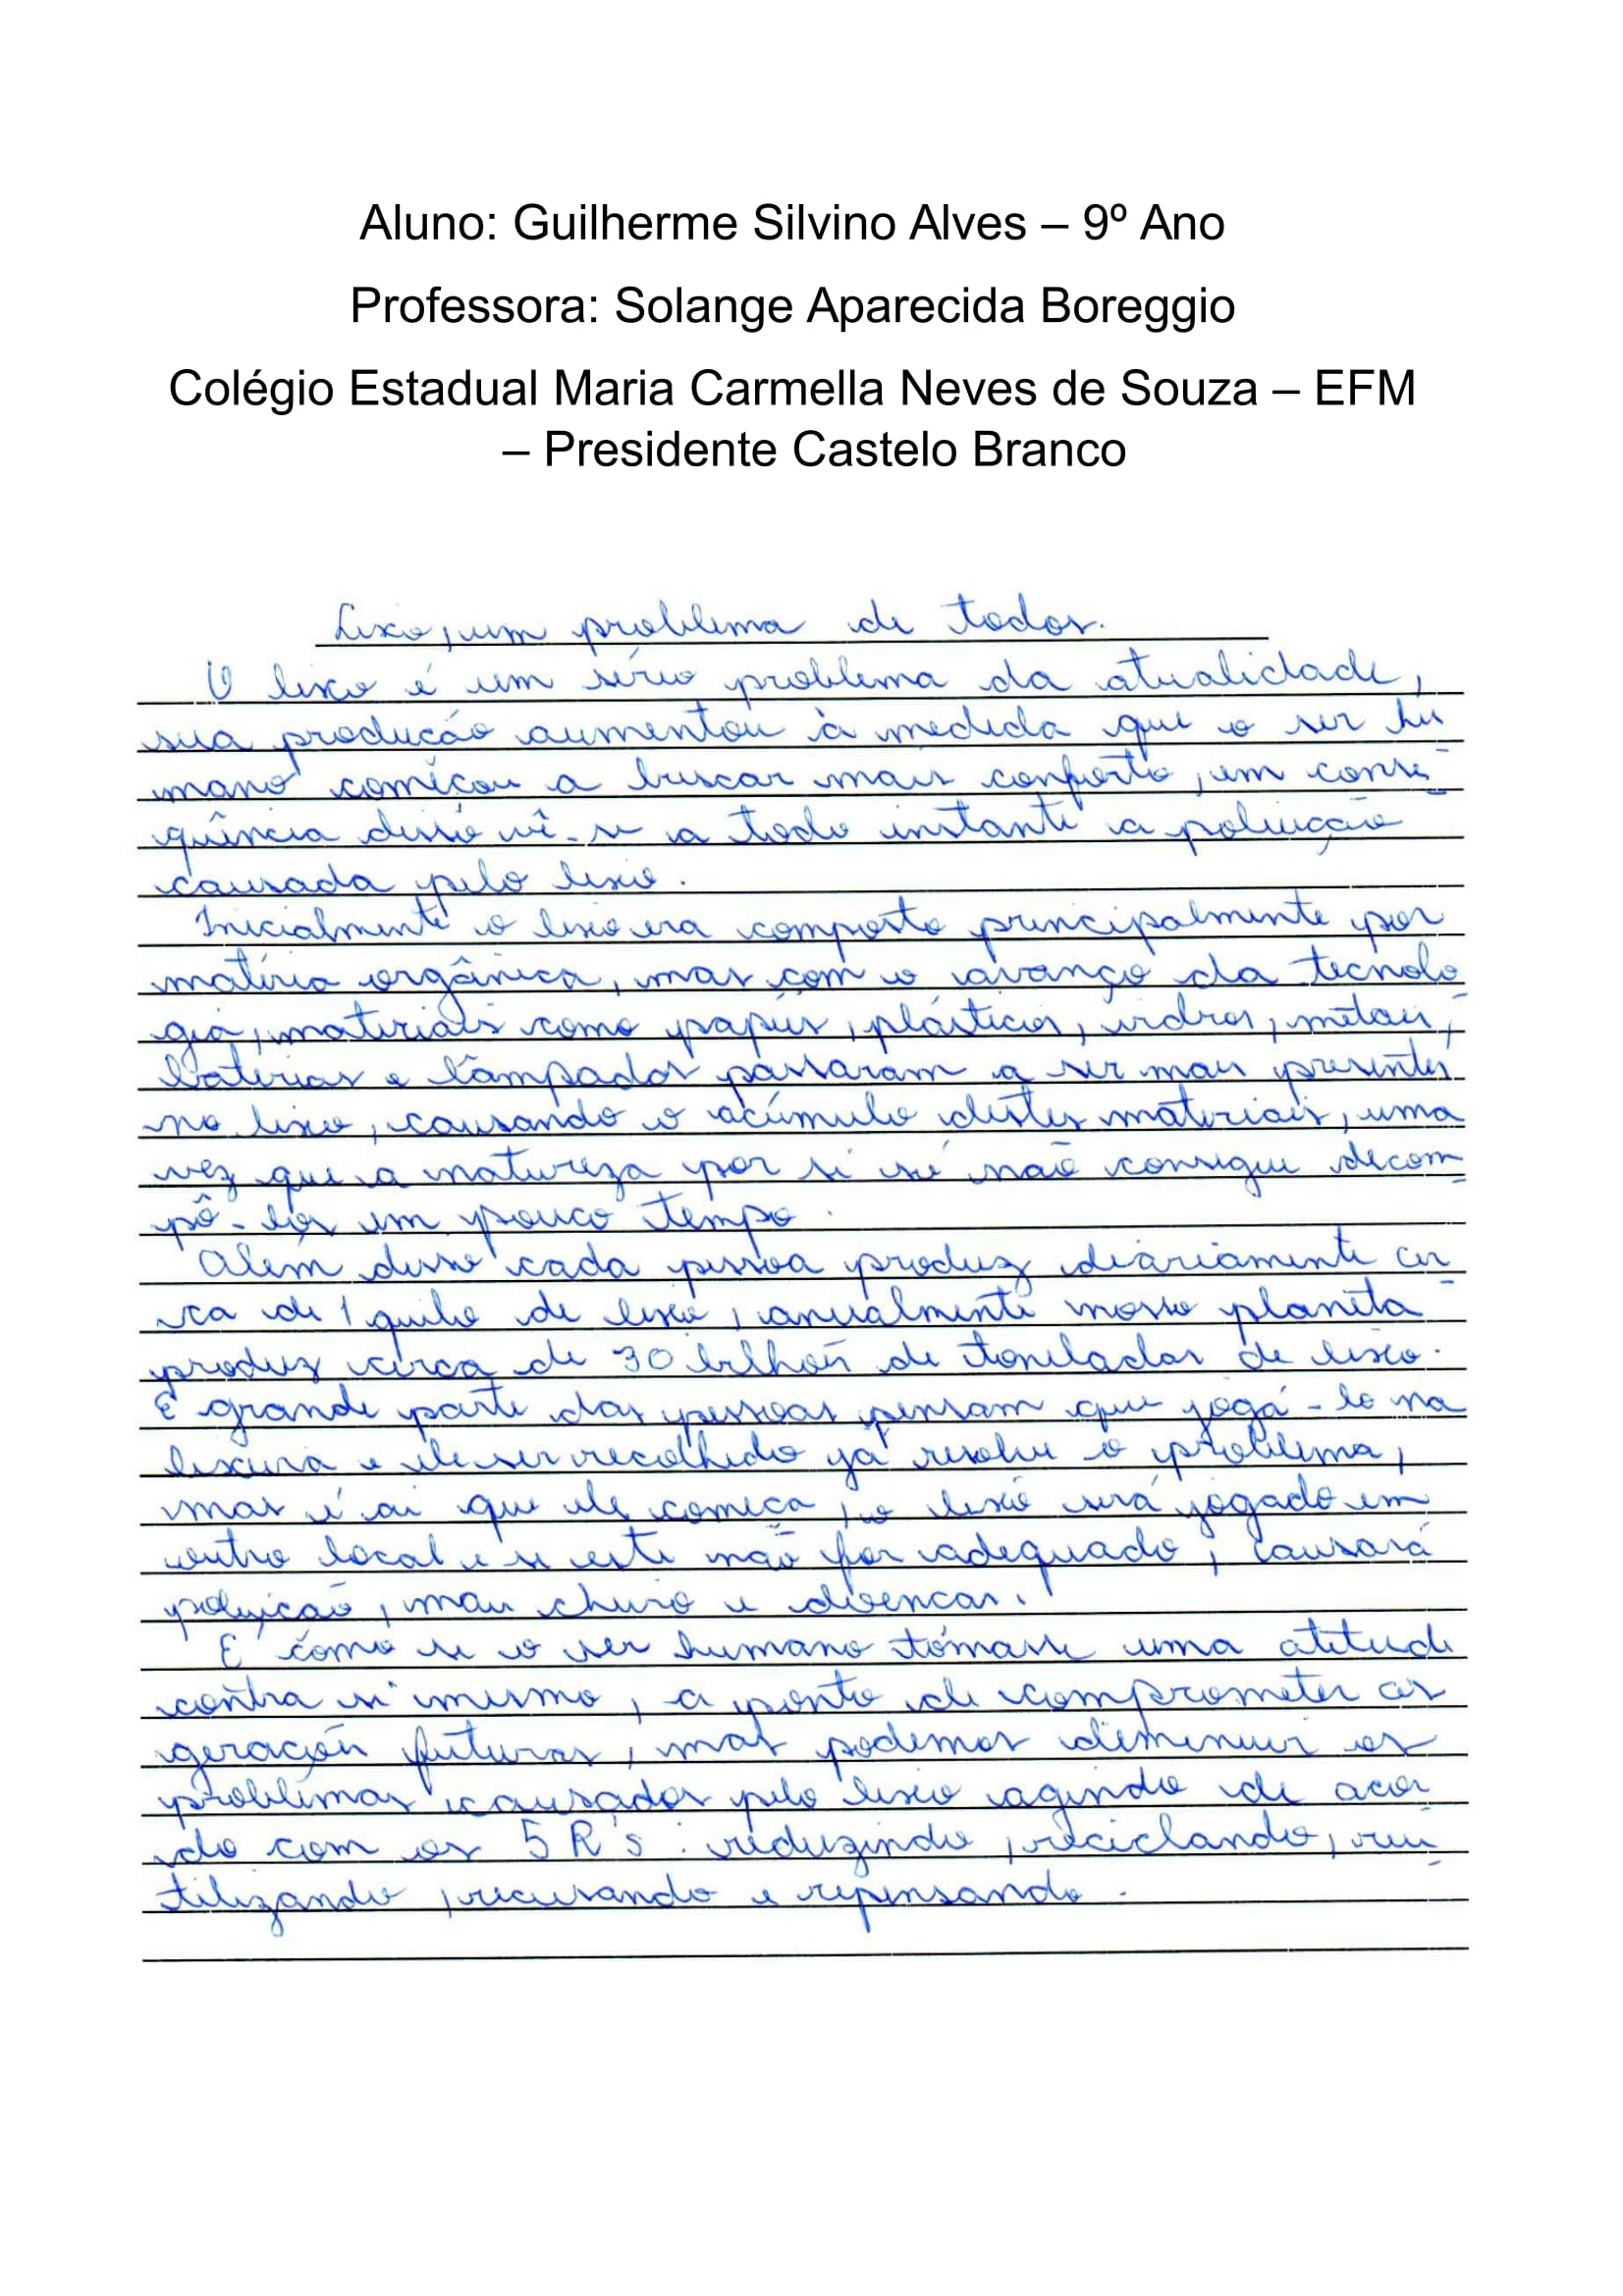 Aluno: Guilherme Silvino Alves – 9º Ano
Professora: Solange Aparecida Boreggio
Colégio Estadual Maria Carmella Neves de Souza – EFM
– Presidente Castelo Branco
Lixo, um problema de todos.
O lixo é um sério problema da atualidade,
sua produção aumentou à medida que o ser hu
mano começou a buscar mais conforto, em conse
quência disso vê-se a todo instante a poluição
causada pelo lixo.
Inicialmente o lixo era composto principalmente por
matéria orgânica, mas com o avanço da tecnolo
gia, materiais como papéis, plásticos, vidros, metais,
baterias e lâmpadas passaram a ser mais presentes
no lixo, causando o acúmulo destes materiais, uma
vez que a natureza por si só não consegue decom
pô-los em pouco tempo.
Além disso cada pessoa produz diariamente cer
ca de 1 quilo de lixo, anualmente nosso planeta
produz cerca de 30 bilhões de toneladas de lixo.
E grande parte das pessoas pensam que jogá-lo na
lixeira e ele ser recolhido já resolve o problema,
mas é ai que ele começa, o lixo será jogado em
outro local e se este não for adequado, causará
poluição, mau cheiro e doenças.
É como se o ser humano tomasse uma atitude
contra si mesmo, a ponto de comprometer as
gerações futuras, mas podemos diminuir os
problemas causados pelo lixo agindo de acor
do com os 5 R's: reduzindo, reciclando, reu
tilizando, recusando e repensando.